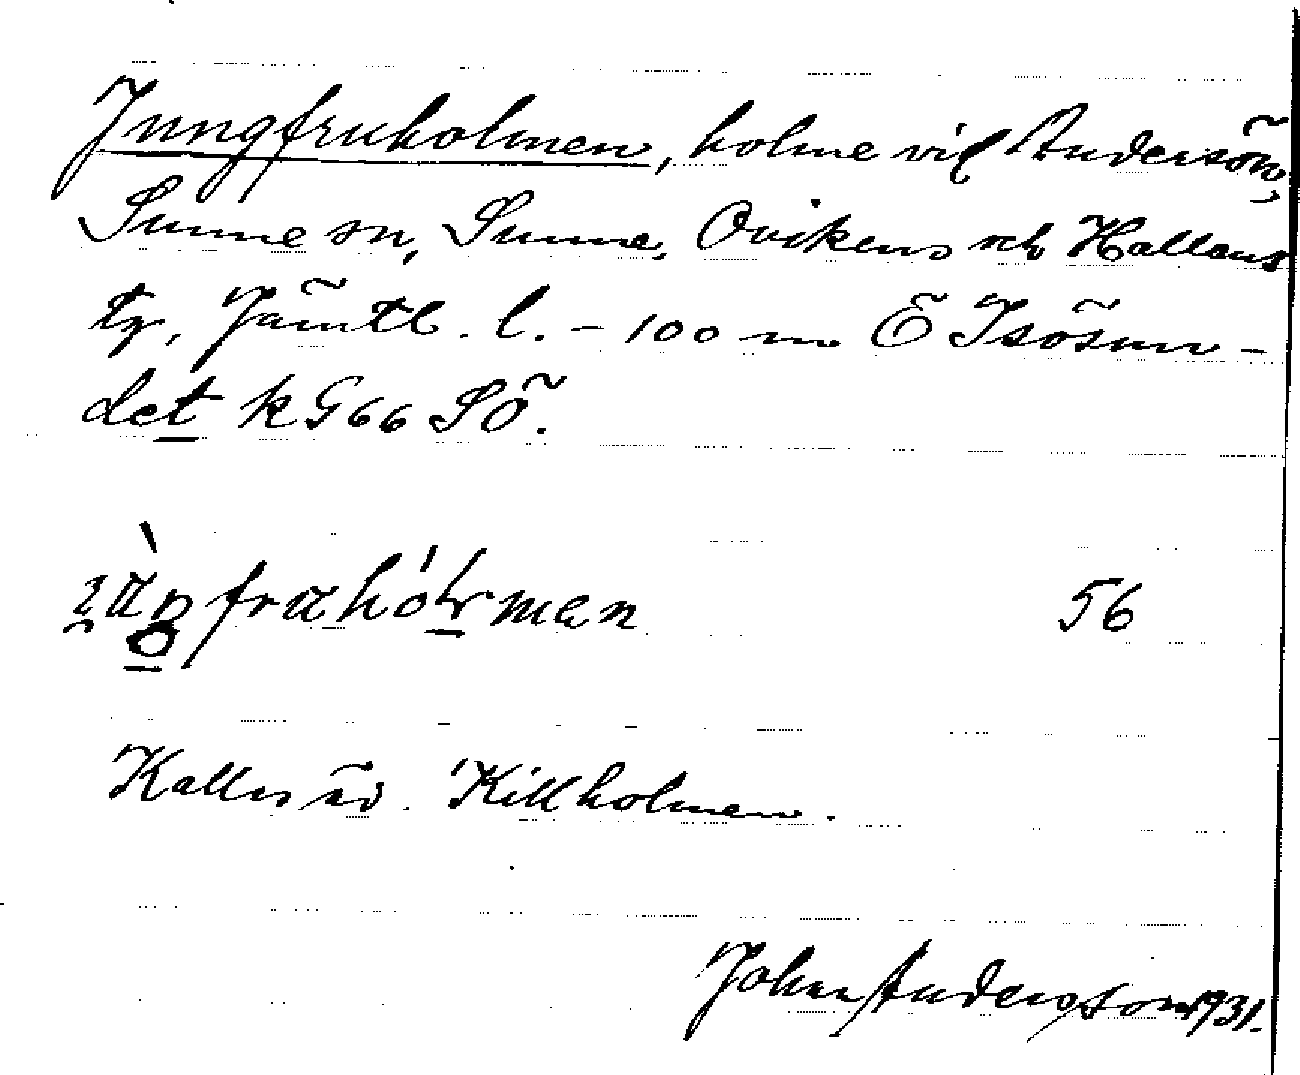 Jungfruholmen, holme vid Andersön,
Sunne sn, Sunne, Ovikens och Hallens
tg, Jämtl. l. – 100 m Ö Isösun-
det kG66 SÖ.
56
Kallas äv. Killholmen.
John Andersson 1931.